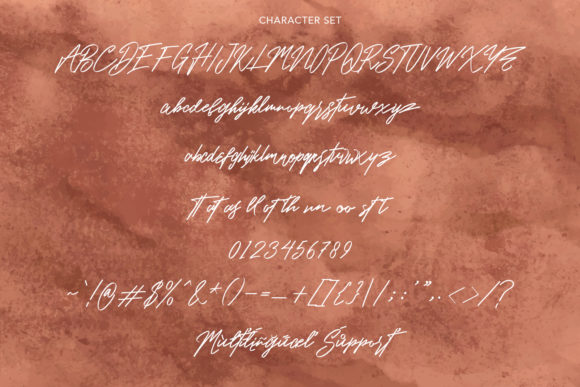 CHARACTER SET
ABCDEFGHIJKLMNOPQRSTUVWXYZ
abcdefghijklmnopqrstuvwxyz
abcdefghijklmnopqrstuvwxyz
0123456789
~`!@#$%^&*()-=_+[]{}|/;:'",.<>/?
Multilingual Support